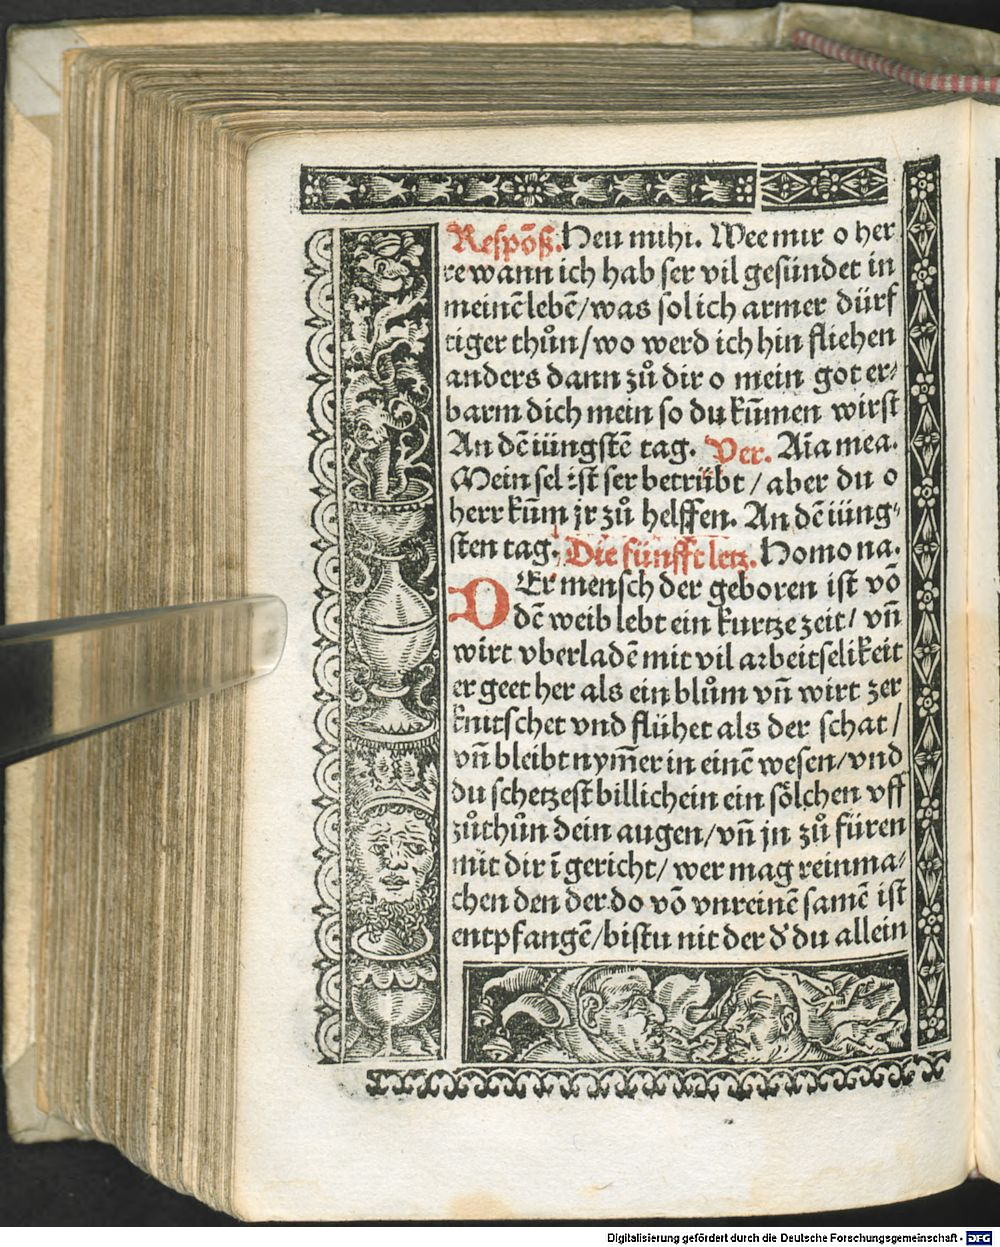 Respõß. Heu mihi. Wee mir o her
re wann ich hab ser vil gesündet in
meinē lebē/was sol ich armer dürf
tiger thůn/wo werd ich hin fliehen
anders dann zů dir o mein got er⸗
barm dich mein so du kūmen wirst
An dē iüngstē tag. Ver. Aīa mea.
Mein sel ist ser betrübt/aber du o
herr kūm jr zů helffen. An dē iüng⸗
sten tag. Die fünfft letz. Homo na.
DEr mensch der geboren ist vō
dē weib lebt ein kurtze zeit/ vn̄
wirt vberladē mit vil arbeitselikeit
er geet her als ein blům vn̄ wirt zer
knitschet vnd flühet als der schat/
vn̄ bleibt nym̄er in einē wesen/vnd
du schetzest billich ein ein sölchen vff
zůthůn dein augen/vn̄ jn zů füren
mit dir ī gericht/ wer mag rein ma⸗
chen den der do vō vnreinē samē ist
entpfangē/bistu nit der d̕ du allein
Digitalisierung gefördert durch die Deutsche Forschungsgemeinschaft - DFG